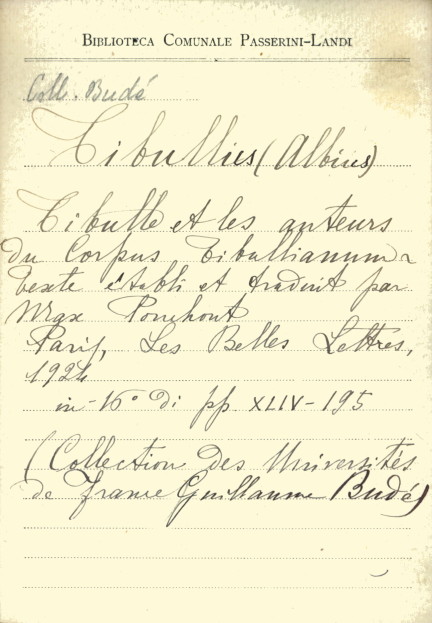 BIBLIOTECA COMUNALE PASSERINI-LANDI
Coll. Budé
Tibullus (Albius)
Tibulle et les auteurs
du Corpus Tibullianum -
texte établi et traduit par
Max Ponchont
Paris, Les Belles Lettres,
1924
in-16° di pp. XLIV-195
(Collection des Universités
de France Guillaume Budé)